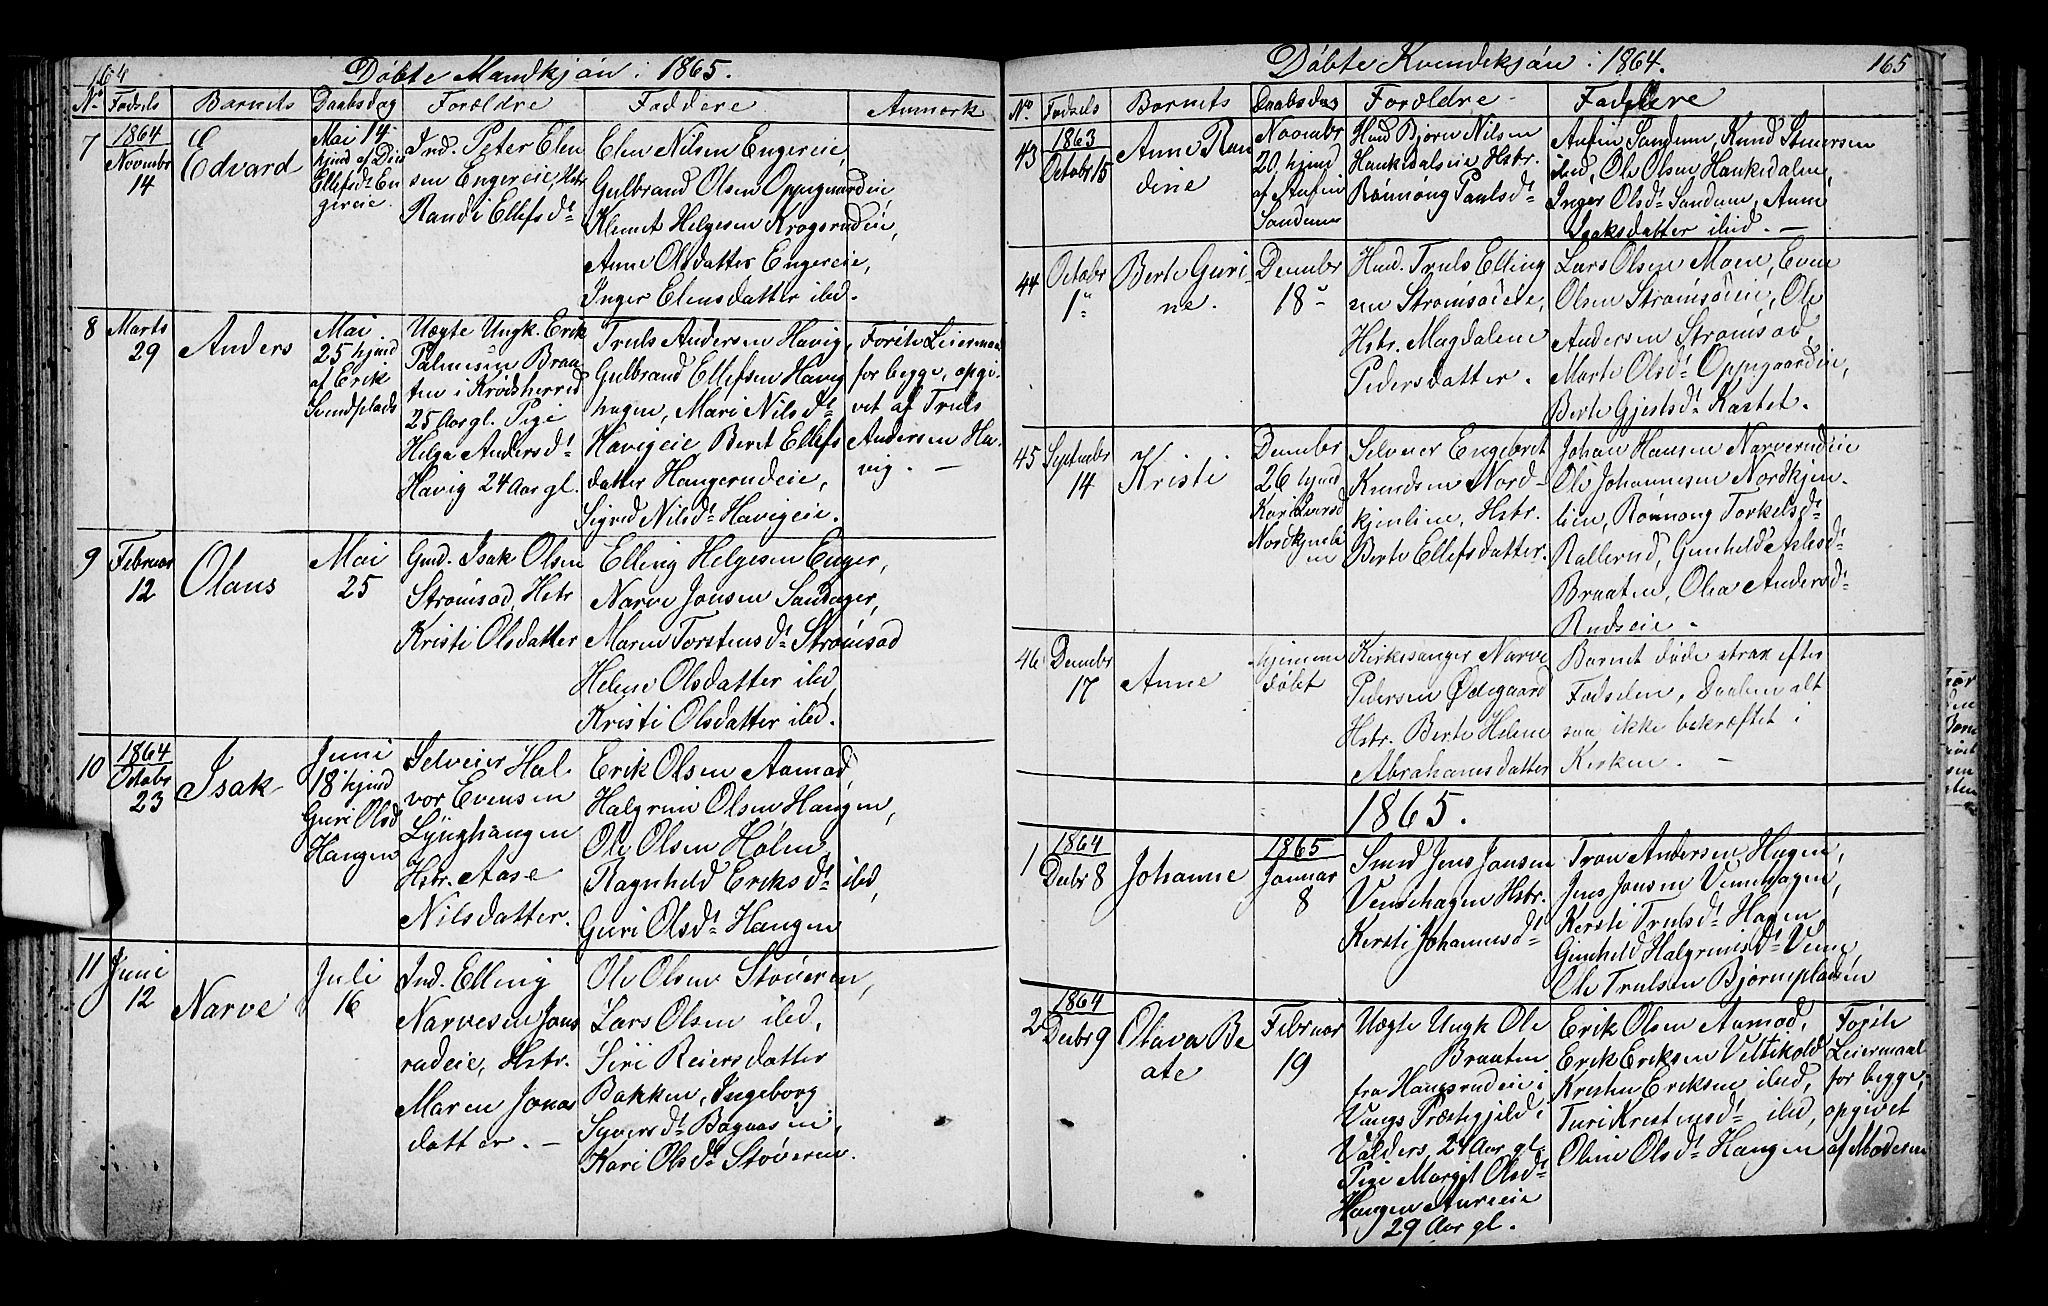 164
Döbte Mandkjön i 1865.
No Födsels Barnets Daabsdag Forældre Faddere Anmærk
7 1864 Novembr 14
Edvard
Mai 14 hjmd af Ellefsdt Engereie
Ind. Peter Elensen Engereie, Hstr. Randi Ellefsdt
Elen Nilsen Engereie,
Gulbrand Olsen Oppegaardeie,
Klemet Helgesen Krogsrudeie,
Anne Olsdatter Engereie,
Inger Elensdatter ibd.
8 Marts 29
Anders
Mai 25 hjmd af Erik Svendplads
Uægte Ungk. Erik
Palmesen Braaten i Krødsherred
25 Aar gl. Pige
Helga Andersdt
Havig 24 Aar gl.
Truls Andersen Havig,
Gulbrand Ellefsen Havighagen, Mari Nilsdt
Havigeie Berit Ellefsdatter Haugerudeie,
Sigrid Nilsdt Havigeie.
Förste Leiermaal
for begge, opgivet af Truls
Andersen Havig. —
9 Februar 12
Olaus
Mai 25
Gmd. Isak Olsen
Strömsod, Hstr
Kristi Olsdatter
Elling Helgesen Enger,
Narve Jonsen Sandager,
Maren Torstensdt Strömsod
Helene Olsdatter ibd,
Kristi Olsdatter ibd.
10 1864 Octobr 23
Isak
Juni 18 hjmd Guri Olsd Haugen
Selveier Halvor Evensen
Lynghaugen
Hstr. Aase
Nilsdatter.
Erik Olsen Aamod
Halgrim Olsen Haugen,
Ole Olsen Hølen,
Ragnhild Eriksdt ibd,
Guri Olsdt Haugen
11 Juni 12
Narve
Juli 16
Ind. Elling
Narvesen Jonsrudeie, Hstr.
Maren Jonasdatter. —
Ole Olsen Støveren,
Lars Olsen ibd,
Siri Reiersdatter
Bakken, Ingeborg
Syversdt Bagaasen,
Kari Olsdt Støveren.
Döbte Kvindekjön i 1864.
165
No. Födsels Barnets Daabsdag Forældre Faddere
43 1863 Octobr 15
Anne Randine
Novembr 20, hjmd af Anfin Sandum
Hmd Bjørn Nilsen
Hauksdalseie Hstr.
Rönnong Paulsdt
Anfin Sandum, Knud Steinarsen
ibid, Ole Olsen Hauksdalen,
Inger Olsdt Sandum, Anne
Isaksdatter ibid. —
44 Octobr 1
Berte Gurine.
Decembr 18
Hmd. Truls Ellingsen Strømsodeie,
Hstr. Magdalene
Pedersdatter.
Lars Olsen Moen, Even
Olsen Strømsodeie, Ole
Andersen Strømsod,
Marte Olsdt Oppegaardeie,
Berte Gjestsdt Kastet.
45 Septembr 14
Kristi
Decembr 26 hjmd Kari Larsd Nordkjenlien
Selveier Engebret
Knudsen Nordkjenlien, Hstr.
Berte Ellefsdatter.
Johan Hansen Narverudeie
Ole Johannesen Nordkjenlien, Rönnong Torkelsdt
Rallerud, Gunhild Aslesdt
Braaten, Olea Andersdt
Rudseie.
46 Decembr 17
Anne
hjemmedöbt
Kirkesanger Narve
Pedersen Ødegaard
Hstr. Berte Helene
Abrahamsdatter
Barnet døde strax efter
Födselen, Daaben altsaa ikke bekræftet i
Kirken. —
1865.
1 1864 Decbr 8
Johanne
1865 Januar 8
Smed Jens Jonsen
Vennehagen Hstr.
Kersti Johannesdt
Tron Andersen Hagen,
Jens Jonsen Vennehagen,
Kersti Trulsdt Hagen,
Gunhild Halgrimsdt Venne
Ole Trulsen Bjørnepladsen
2 1864 Decbr 9
Olava Beate
Februar 19
Uægte Ungk Ole
Braaten
fra Haugsrudeie i
Vangs Præstegjeld i
Valders, 24 Aar gl
Pige Margit Olsdt
Haugen Aureeie
29 Aar gl.
Erik Olsen Aamod,
Erik Eriksen Veltikold
Kristen Eriksen ibid,
Turi Kristensdt ibid,
Oline Olsdt Haugen
Förste
Leiermaal
for begge,
opgivet
af Moderen